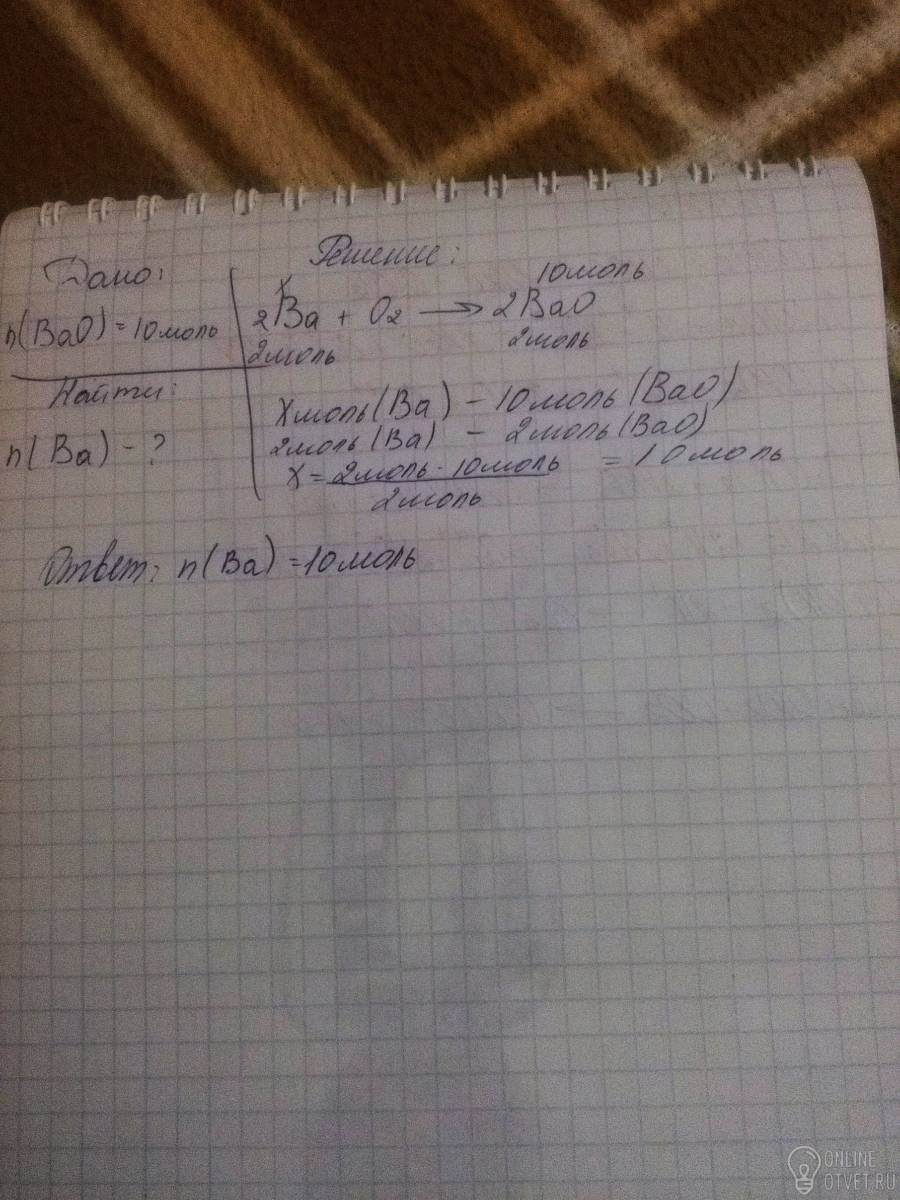 Дано:
n(BaO) = 10 моль
Найти:
n(Ba) - ?
Решение:
x 10 моль
2Ba + O₂ → 2BaO
2 моль 2 моль
X моль (Ba) - 10 моль (BaO)
2 моль (Ba) - 2 моль (BaO)
X = 2 моль · 10 моль = 10 моль
2 моль
Ответ: n(Ba) = 10 моль
ONLINE
OTVET.RU